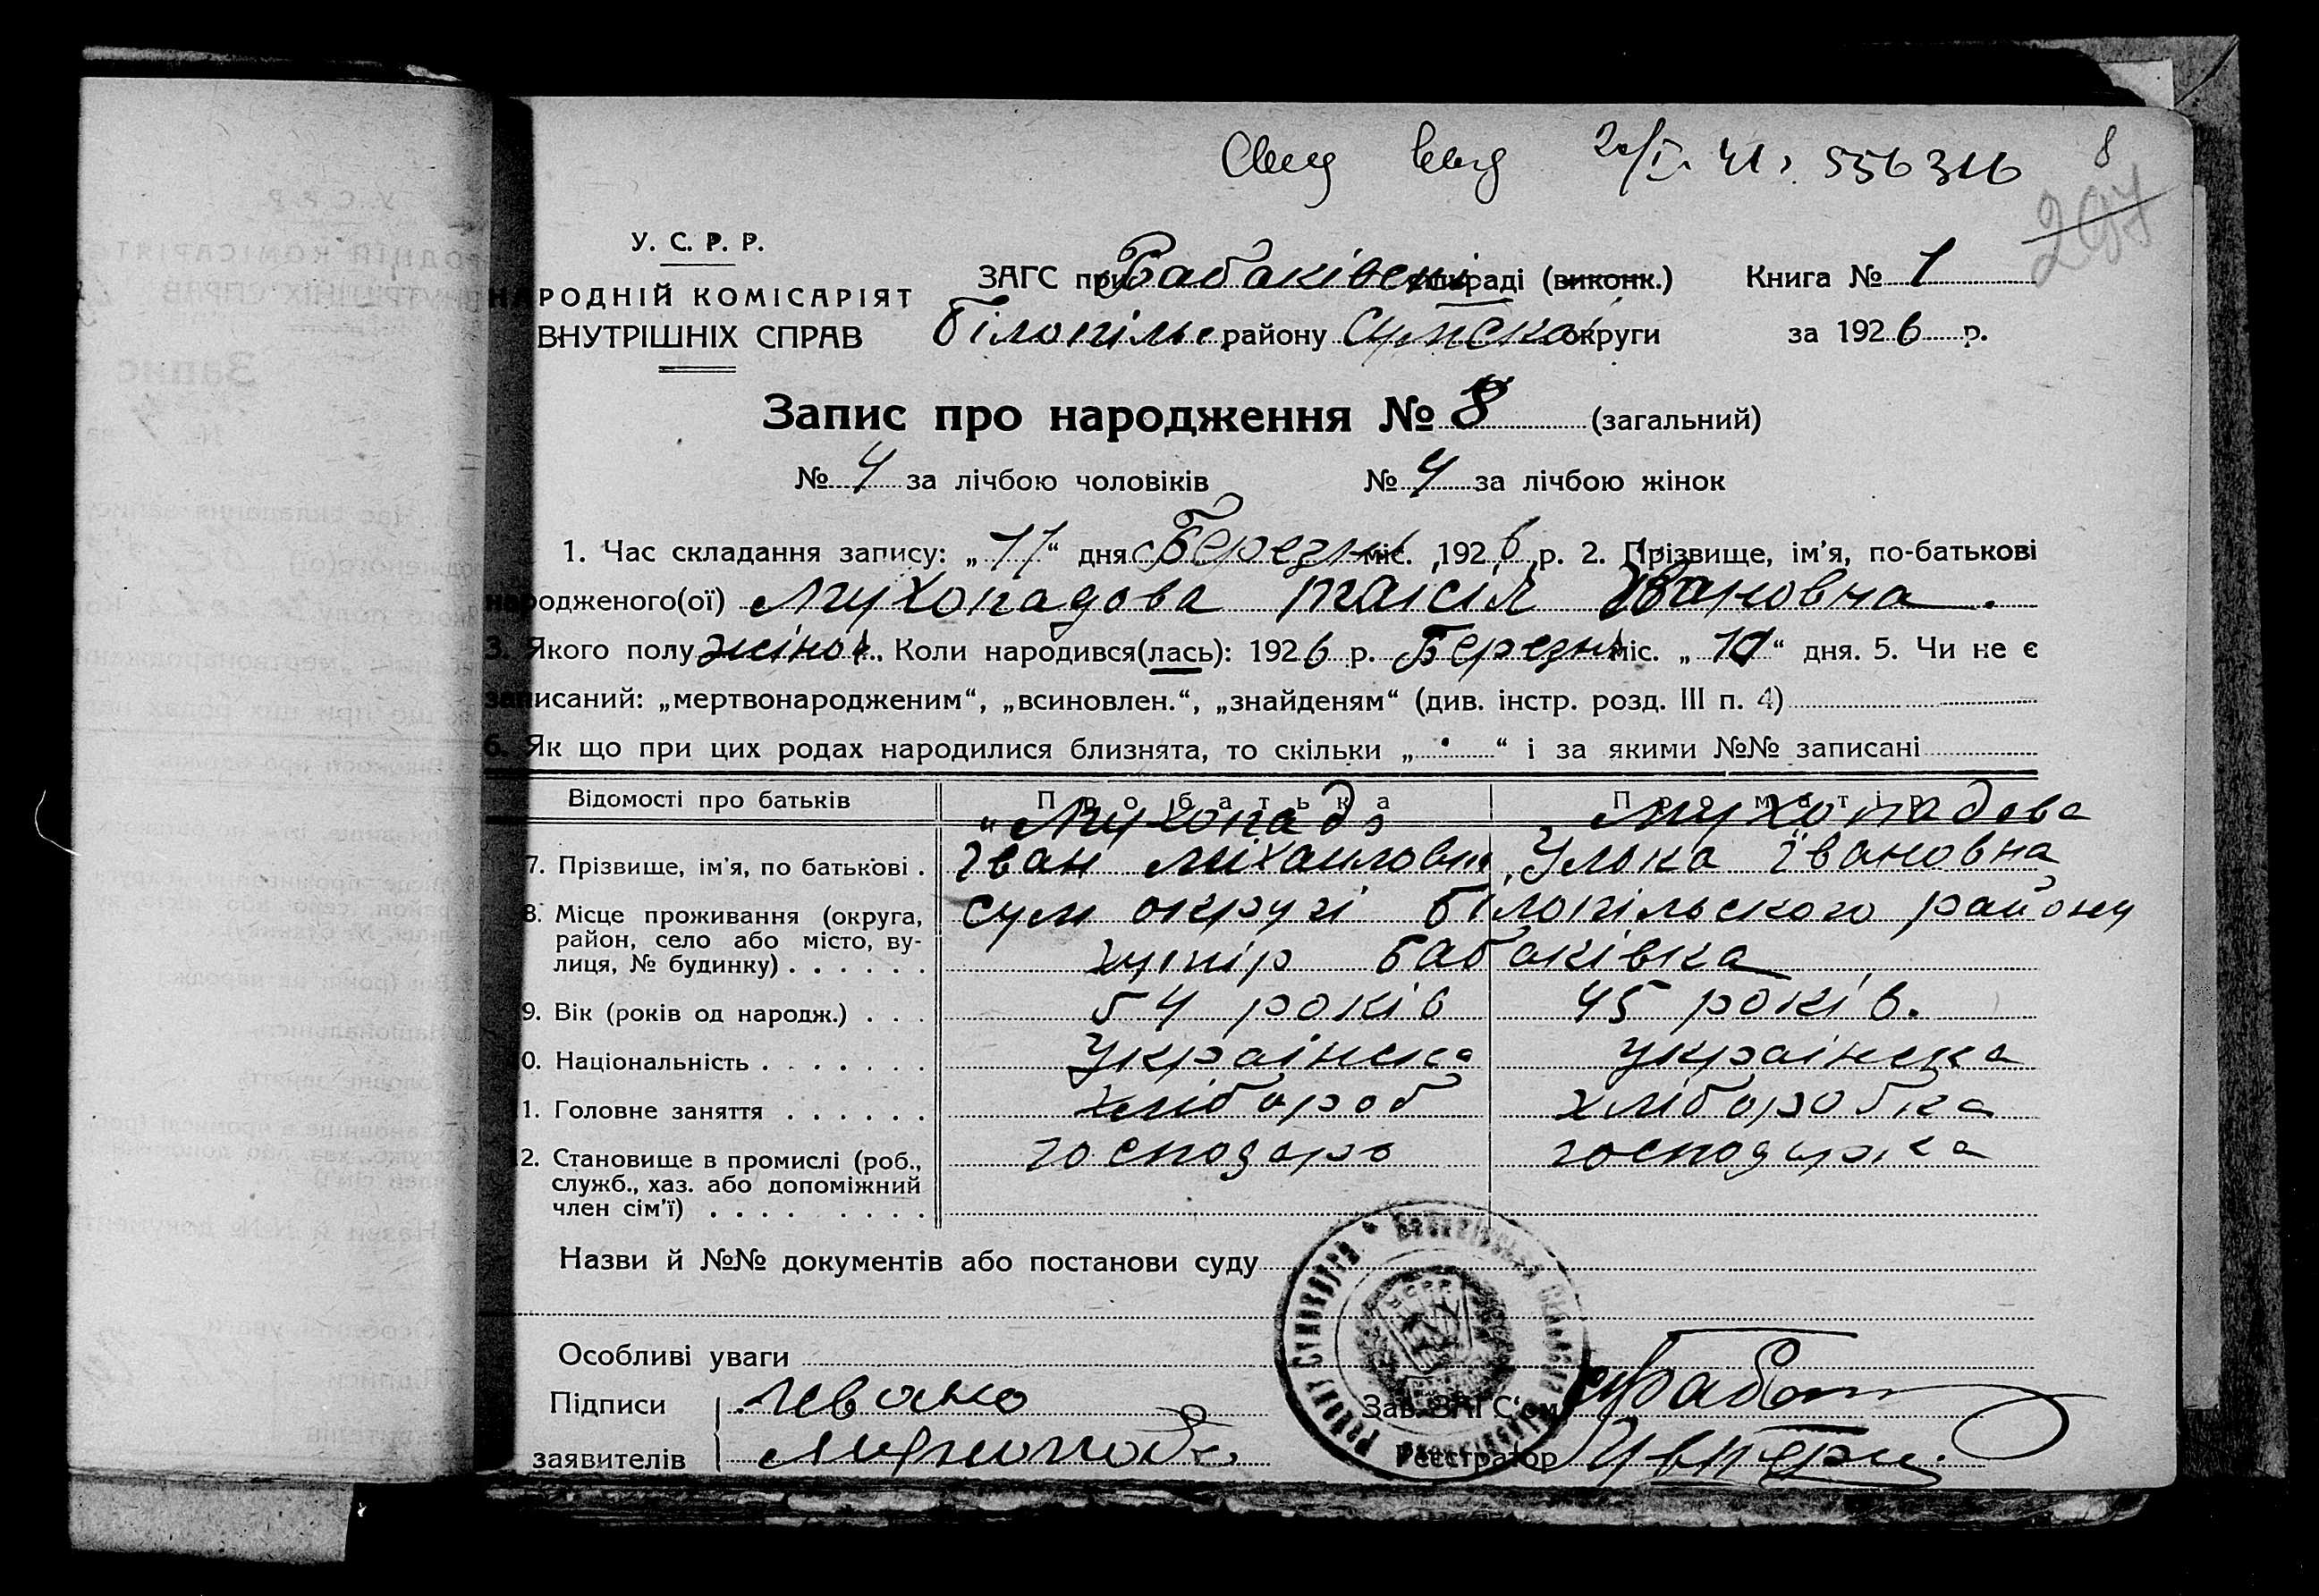 20/I 41 г. 556316 8
297
У. С. Р. Р.
НАРОДНІЙ КОМІСАРІЯТ
ВНУТРІШНІХ СПРАВ
ЗАГС при Бабаківські сільраді (виконк.) Книга № 1
Білопільс району Сумської округи за 1926 р.
Запис про народження № 8 (загальний)
№ 4 за лічбою чоловіків № 4 за лічбою жінок
1. Час складання запису: „11“ дня Березня міс. 1926 р. 2. Прізвище, ім’я, по-батькові
народженого(ої) Мухопадова Таісія Івановна.
3. Якого полу жіноч. Коли народився(лась): 1926 р. Березня міс. „10“ дня. 5. Чи не є
записаний: „мертвонародженим“, „всиновлен.“, „знайденям“ (див. інстр. розд. III п. 4)
6. Як що при цих родах народилися близнята, то скільки „ “ і за якими №№ записані
Відомості про батьків Про батька Про матір
Мухопадъ Мухопадова
7. Прізвище, ім’я, по батькові . Іван Міхаилович Улька Івановна
8. Місце проживання (округа, Сум округі Білопільского району
район, село або місто, ву-
лиця, № будинку) . . . . . . хутір Бабаківка
9. Вік (років од народж.) . . . 54 років 45 років.
0. Національність . . . . . . . Українска Українска
1. Головне заняття . . . . . . хлібороб хліборобка
2. Становище в промислі (роб., господарь господарка
служб., хаз. або допоміжний
член сім’ї) . . . . . . . . .
Назви й №№ документів або постанови суду
Особливі уваги
Підписи Зав. ЗАГС’ом
заявителів Реєстратор